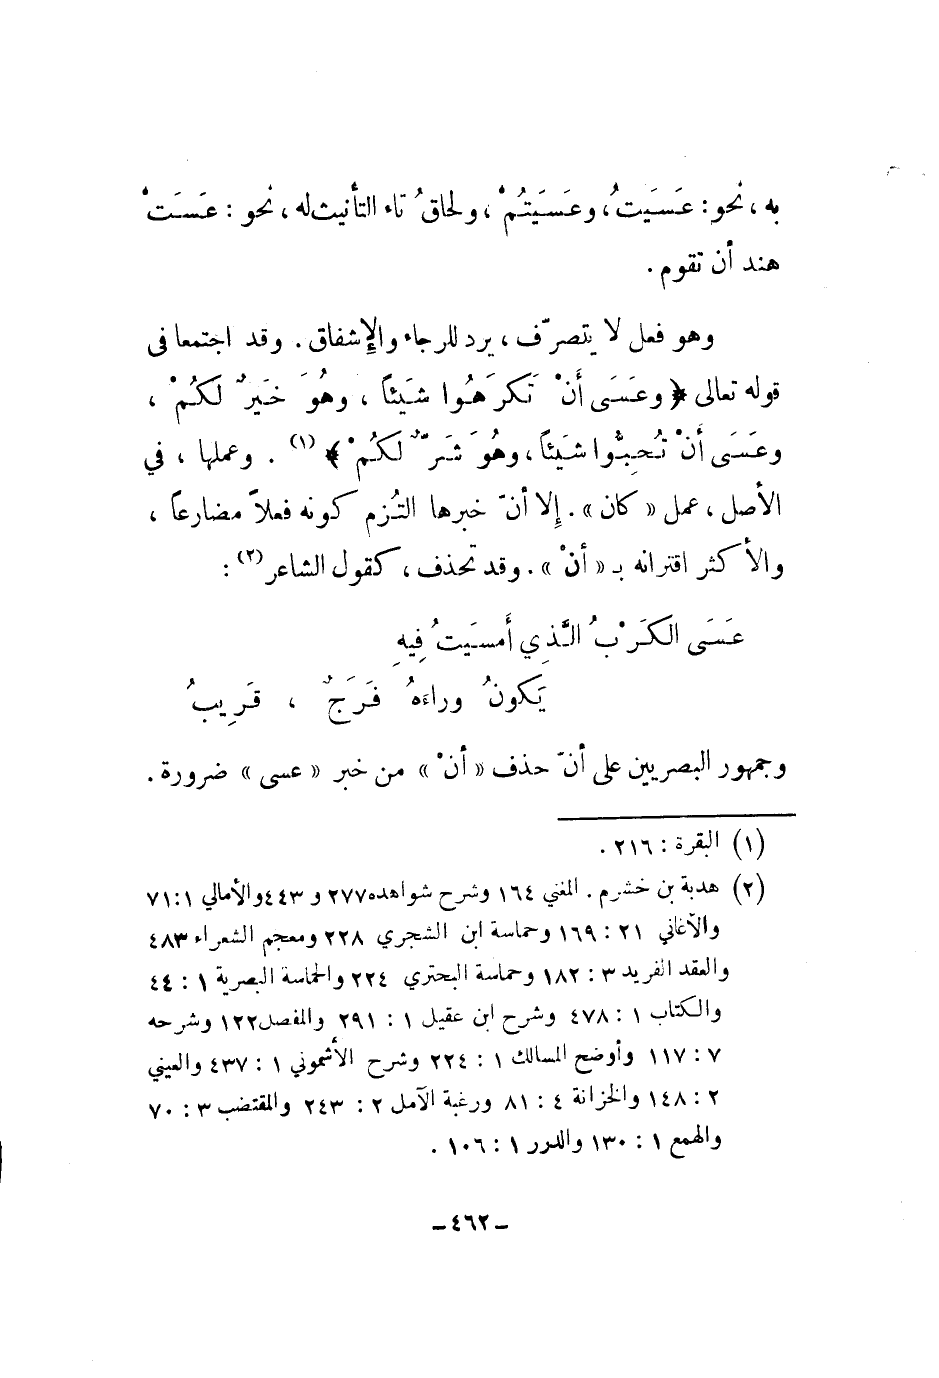 به ، نحو : عَسَيتُ ، وعَسَيتُمْ ، ولحاقُ تاء التأنيث له ، نحو : عَسَتْ
هند أن تقوم .
وهو فعل لا يتصرّف ، يرد للرجاء والإشفاق . وقد اجتمعا في
قوله تعالى ﴿ وعَسَى أَنْ تَكرَهُوا شَيئاً ، وهُوَ خَيرٌ لَكُمْ ،
وعَسَى أَنْ تُحِبُّوا شَيئاً ، وهُوَ شَرٌّ لَكُمْ ﴾ (١) . وعملها ، في
الأصل ، عمل « كان » . إلا أنّ خبرها التُزم كونه فعلاً مضارعاً ،
والأكثر اقترانه بـ « أنْ » . وقد تحذف ، كقول الشاعر (٢) :
عَسَى الكَرْبُ الَّذِي أَمسَيتُ فِيهِ
يَكونُ وراءَهُ فَرَجٌ ، قَرِيبُ
وجمهور البصريين على أنّ حذف « أنْ » من خبر « عسى » ضرورة .
(١) البقرة : ٢١٦ .
(٢) هدبة بن خشرم . المغني ١٦٤ وشرح شواهده ٢٧٧ و ٤٤٣ والأمالي ١ : ٧١
والأغاني ٢١ : ١٦٩ وحماسة ابن الشجري ٢٢٨ ومعجم الشعراء ٤٨٣
والعقد الفريد ٣ : ١٨٢ وحماسة البحتري ٢٢٤ والحماسة البصرية ١ : ٤٤
والكتاب ١ : ٤٧٨ وشرح ابن عقيل ١ : ٢٩١ والمفصل ١٢٢ وشرحه
٧ : ١١٧ وأوضح المسالك ١ : ٢٢٤ وشرح الأشموني ١ : ٤٣٧ والعيني
٢ : ١٤٨ والخزانة ٤ : ٨١ ورغبة الآمل ٢ : ٢٤٣ والمقتضب ٣ : ٧٠
والهمع ١ : ١٣٠ والدرر ١ : ١٠٦ .
– ٤٦٢ –